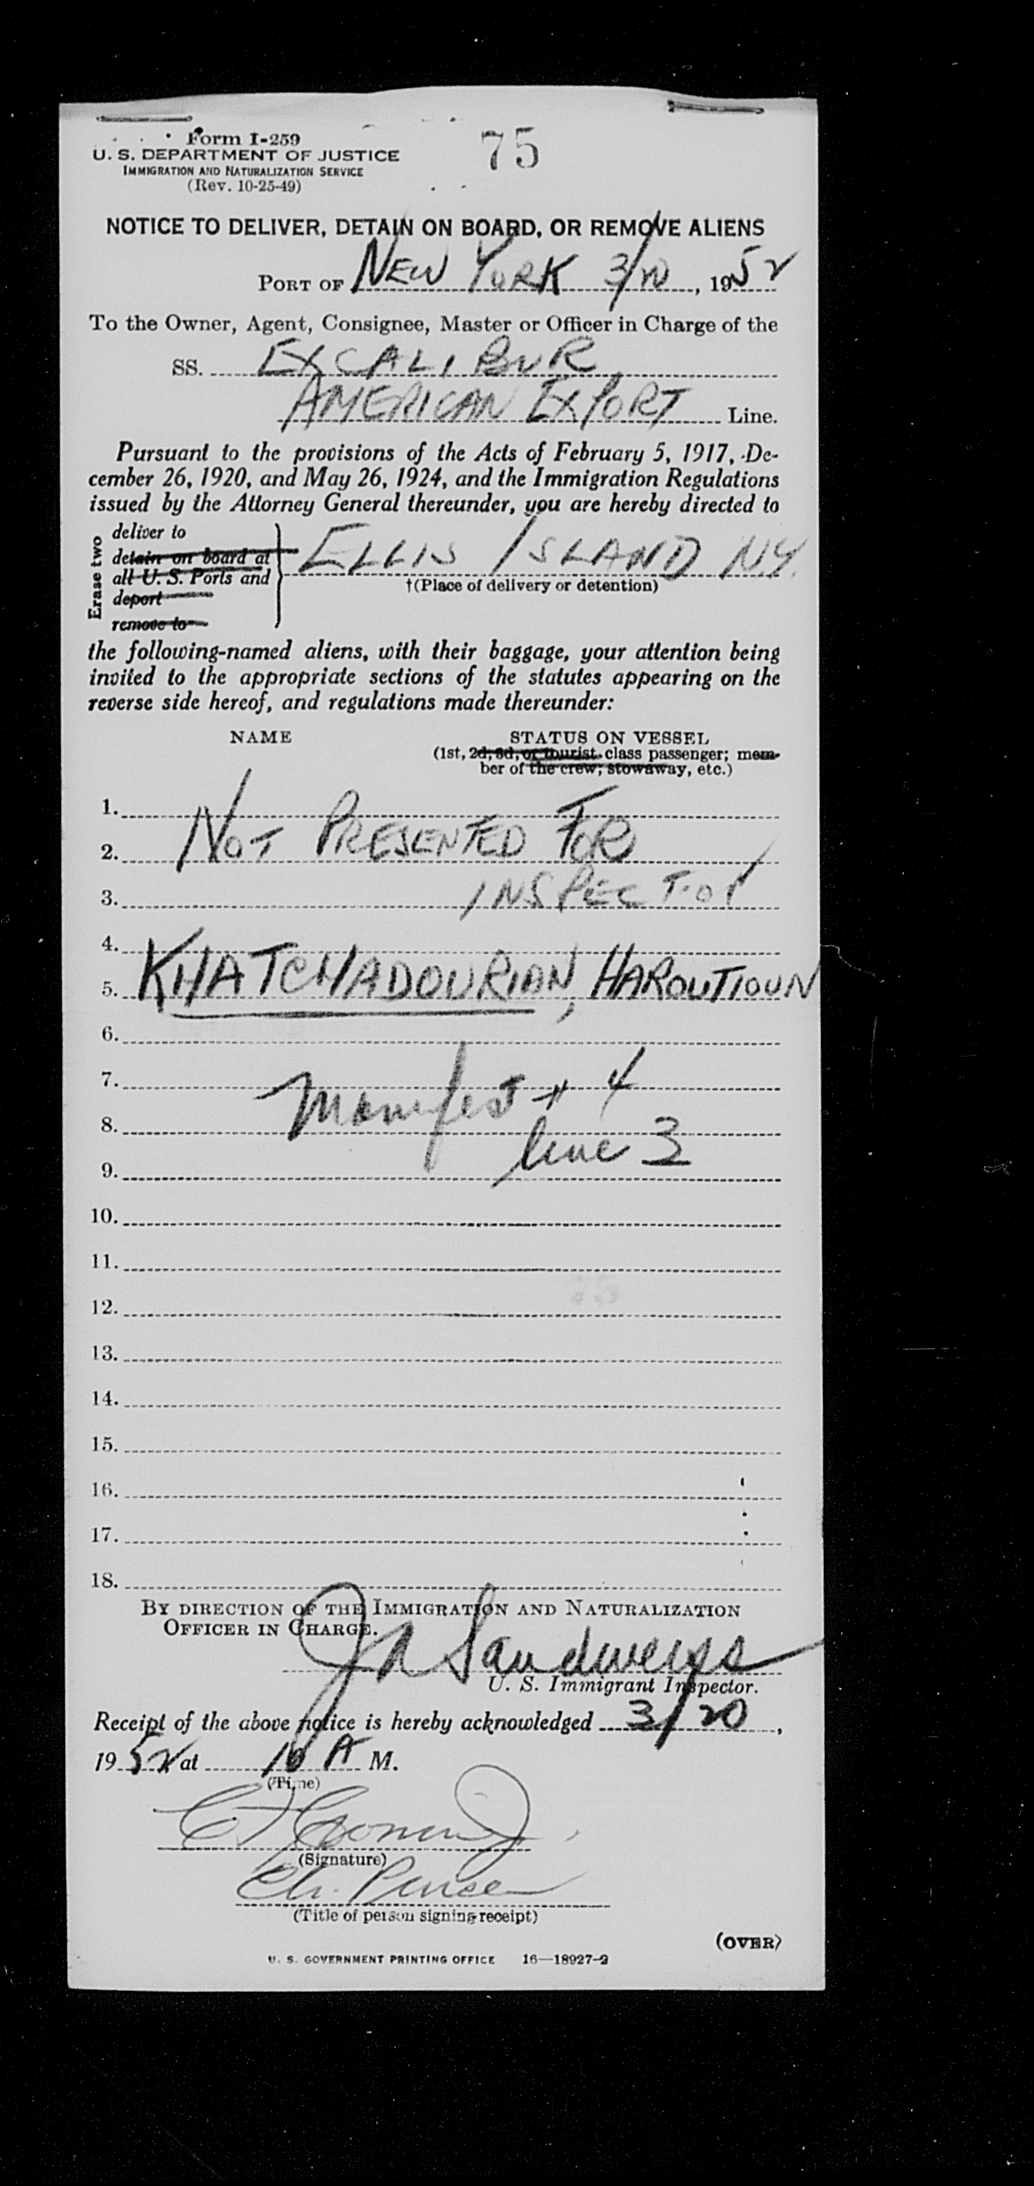 Form I-259
75
U. S. DEPARTMENT OF JUSTICE
IMMIGRATION AND NATURALIZATION SERVICE
(Rev. 10-25-49)
NOTICE TO DELIVER, DETAIN ON BOARD, OR REMOVE ALIENS
PORT OF NEW YORK 3/20, 1952
To the Owner, Agent, Consignee, Master or Officer in Charge of the
SS. EXCALIBUR
AMERICAN EXPORT Line.
Pursuant to the provisions of the Acts of February 5, 1917, De-
cember 26, 1920, and May 26, 1924, and the Immigration Regulations
issued by the Attorney General thereunder, you are hereby directed to
Erase two
deliver to
detain on board at
all U. S. Ports and
deport
remove to
ELLIS ISLAND NY.
†(Place of delivery or detention)
the following-named aliens, with their baggage, your attention being
invited to the appropriate sections of the statutes appearing on the
reverse side hereof, and regulations made thereunder:
NAME STATUS ON VESSEL
(1st, 2d, 3d, or tourist class passenger; mem-
ber of the crew; stowaway, etc.)
1.
2. NOT PRESENTED FOR
3. INSPECTION
4.
5. KHATCHADOURIAN, HAROUTIOUN
6.
7. Manifest # 4
8. line 3
9.
10.
11.
12.
13.
14.
15.
16.
17.
18.
BY DIRECTION OF THE IMMIGRATION AND NATURALIZATION
OFFICER IN CHARGE.
Sandweiss
U. S. Immigrant Inspector.
Receipt of the above notice is hereby acknowledged 3/20,
1952 at 10 A M.
(Time)
(Signature)
Ch. Purser
(Title of person signing receipt)
(OVER)
U. S. GOVERNMENT PRINTING OFFICE 16—18927-2